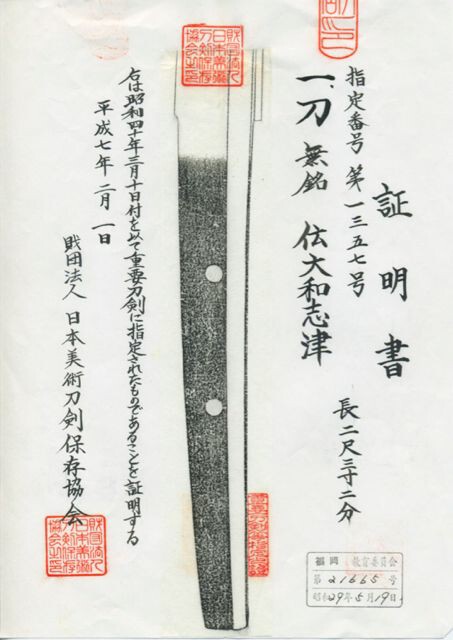 証明書
指定番号 第一三五七号
一、刀 無銘 伝大和志津
長二尺三寸二分
右は昭和四十年三月十日付を以て重要刀剣に指定されたものであることを証明する
平成七年二月一日
財団法人 日本美術刀剣保存協会
財団法人
日本美術
刀剣保存
協会之印
財団法人
日本美術
刀剣保存
協会之印
福岡 教育委員会
第 21665 号
昭和29年5月19日